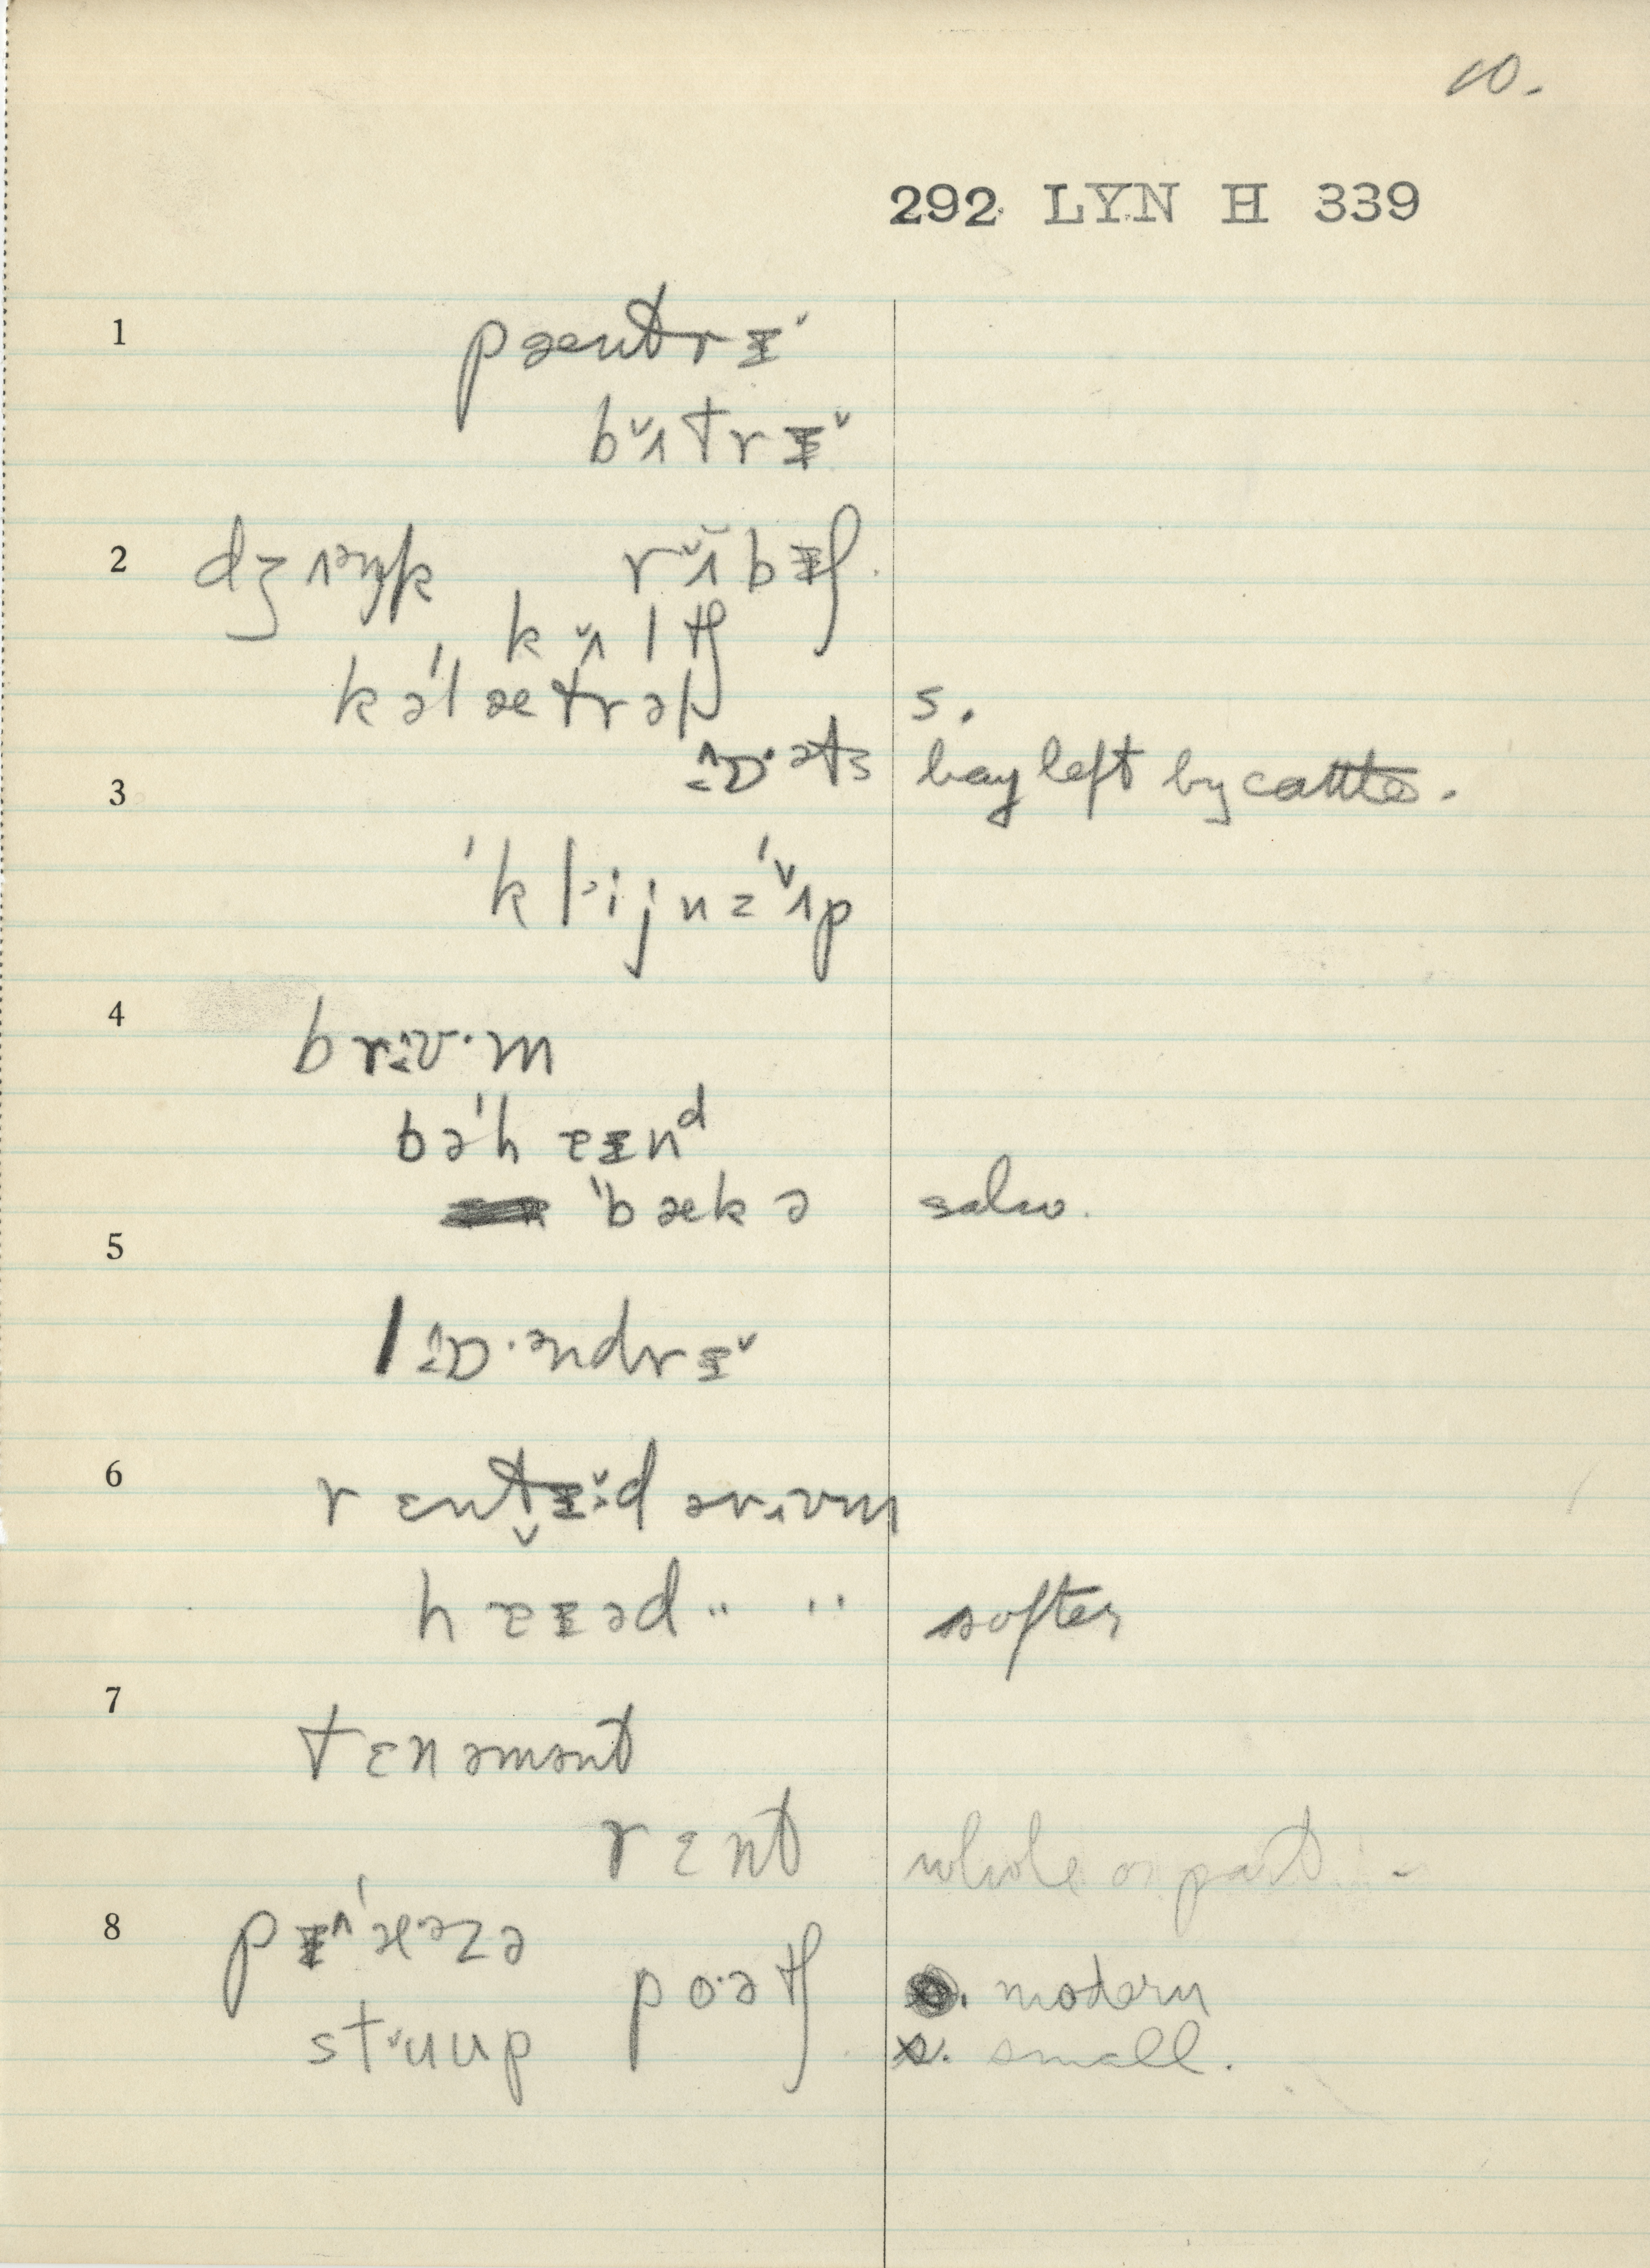 10.
292 LYN H 339
1 pæntrɪ̵ˇ
bˇʌtrɪ̵ˇ
2 dʒʌəŋk rˇʌbɪ̵ʃ.
kˇʌltʃ
kə'lætrəl s.
ɒ·əts hay left by cattle.
3 'kl·ijnz'ˇʌp
4 brʊ·m
bə'hɛɪ̵nᵈ
'bækə salw.
5 lɒ·əndrɪ̵ˇ
6 rɛntɪ̵ˇ·d ərʊm
hɛɪ̵əd " " softer
7 tɛnəmənt
rɛnt whole or part -
8 pɪ̵'æzə
poətʃ s. modern
stˇuup s. small.